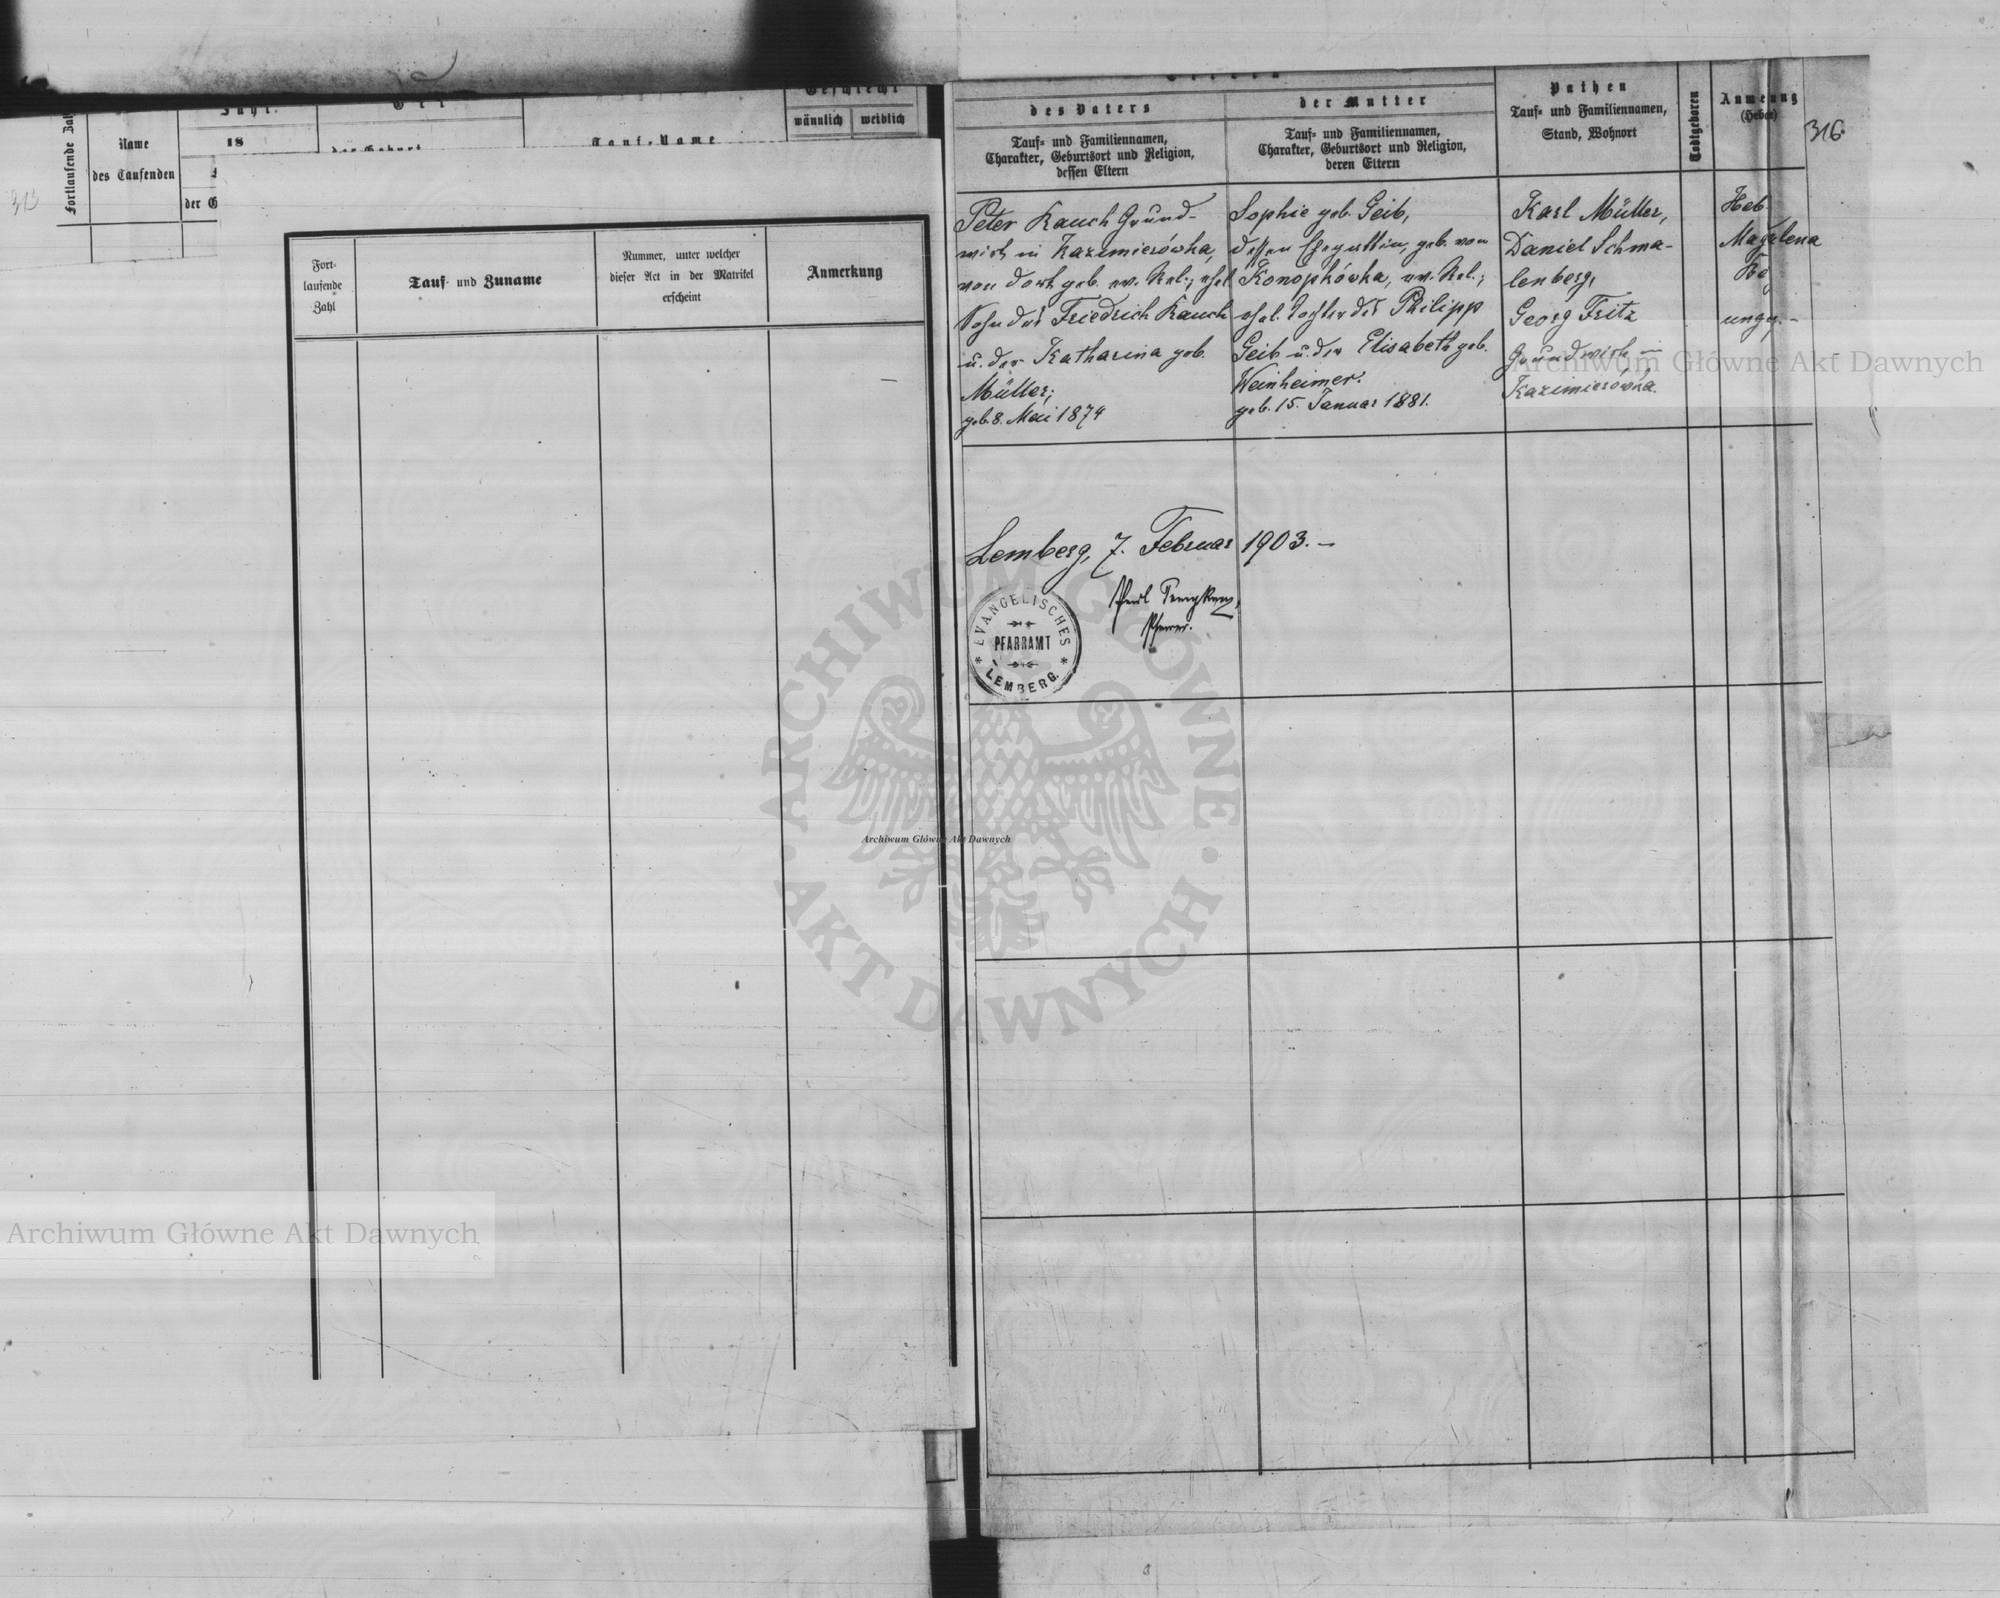 Fortlaufende Zahl
Name
des Taufenden
18
männlich
weiblich
Geschlecht
Tauf-Name
313
Fort-
laufende
Zahl
Tauf- und Zuname
Nummer, unter welcher
dieser Act in der Matrikel
erscheint
Anmerkung
Eltern
des Vaters
Tauf- und Familiennamen,
Charakter, Geburtsort und Religion,
dessen Eltern
der Mutter
Tauf- und Familiennamen,
Charakter, Geburtsort und Religion,
deren Eltern
Pathen
Tauf- und Familiennamen,
Stand, Wohnort
Todtgeboren
316
Peter Rauch Grund-
wirth in Kazimierówka,
von dort geb. ev. Rel.; ehel.
Sohn des Friedrich Rauch
u. der Katharina geb.
Müller;
geb. 8. Mai 1874
Sophie geb. Geib,
dessen Ehegattin, geb. von
Konopkówka, ev. Rel.;
ehel. Tochter des Philipp
Geib u. der Elisabeth geb.
Weinheimer.
geb. 15. Januar 1881.
Karl Müller,
Daniel Schma-
lenberg,
Georg Fritz
Grundwirth in
Kazimierówka.
Heb.
Magdalena
Lemberg, 7. Februar 1903. –
Pfarrer.
EVANGELISCHES
PFARRAMT
LEMBERG.
Archiwum Główne Akt Dawnych
ARCHIWUM GŁÓWNE
AKT DAWNYCH
Archiwum Główne Akt Dawnych
Archiwum Główne Akt Dawnych